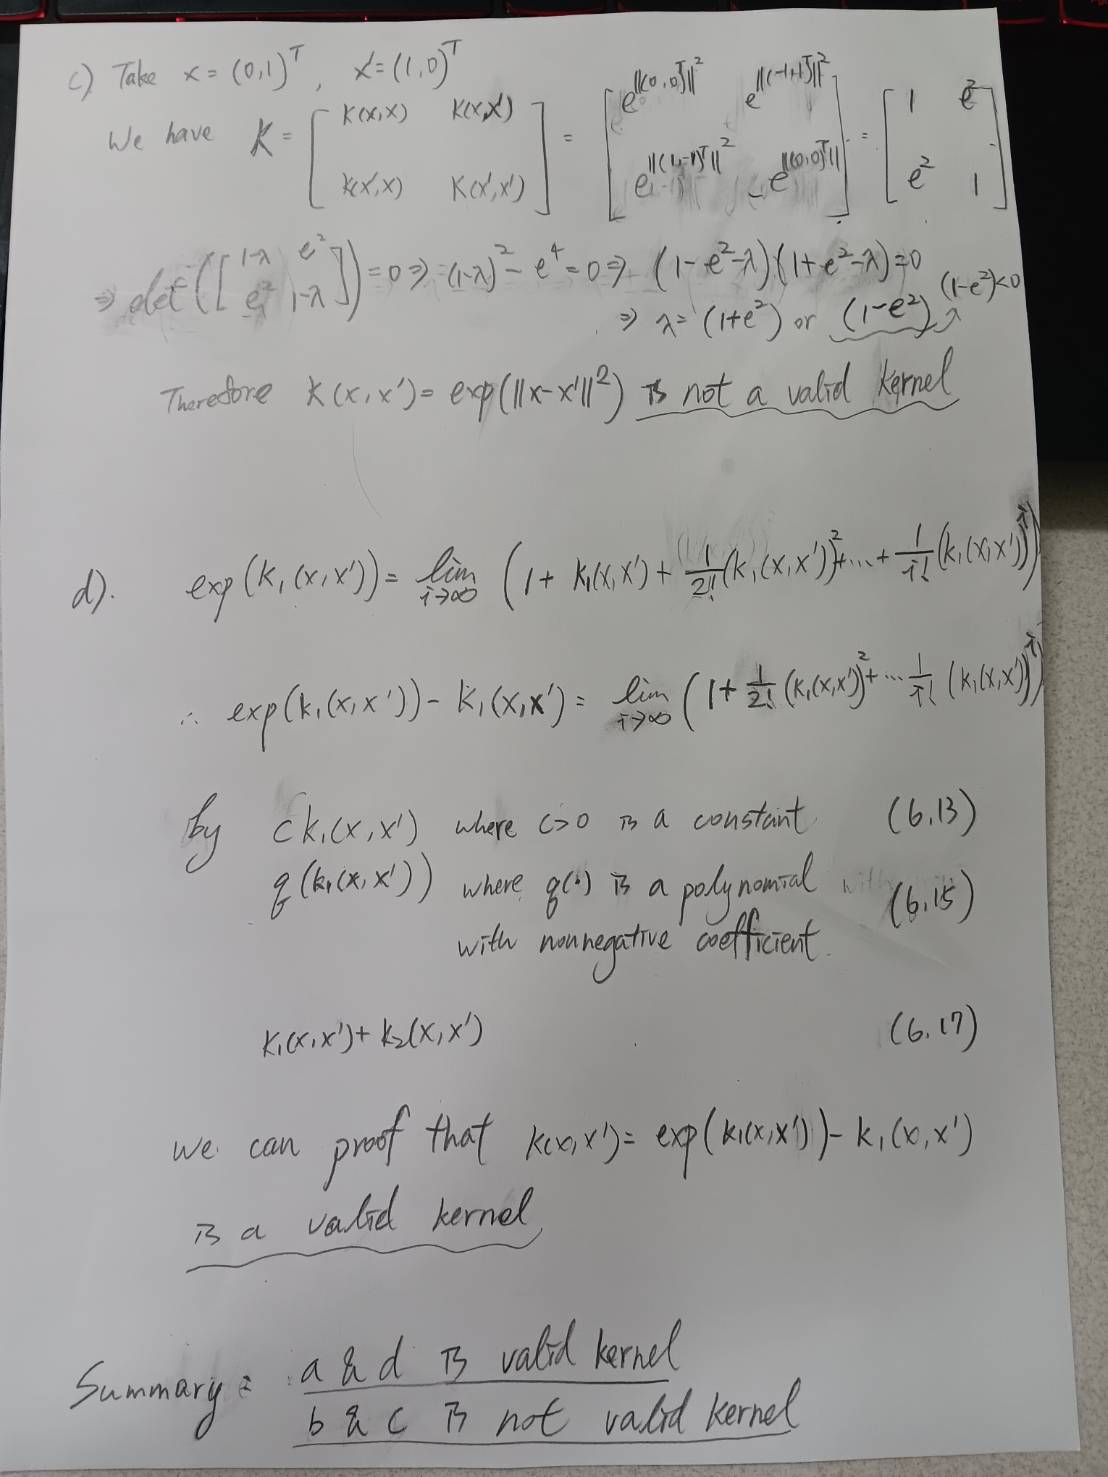 c) Take x = (0,1)^T, x' = (1,0)^T
We have K = [ K(x,x) K(x,x') ; k(x',x) K(x',x') ] = [ e^{||(0,0)^T||^2} e^{||(-1,1)^T||^2} ; e^{||(1,-1)^T||^2} e^{||(0,0)^T||} ] = [ 1 e^2 ; e^2 1 ]
⇒ det([ 1-λ e^2 ; e^2 1-λ ]) = 0 ⇒ (1-λ)^2 - e^4 = 0 ⇒ (1-e^2-λ)(1+e^2-λ)=0
⇒ λ = (1+e^2) or (1-e^2) (1-e^2)<0
Therefore K(x,x') = exp(||x-x'||^2) is not a valid kernel
d). exp(k_1(x,x')) = lim_{i→∞} (1 + k_1(x,x') + \frac{1}{2!}(k_1(x,x'))^2 + ... + \frac{1}{i!}(k_1(x,x'))^i)
∴ exp(k_1(x,x')) - k_1(x,x') = lim_{i→∞} (1 + \frac{1}{2!}(k_1(x,x'))^2 + ... \frac{1}{i!}(k_1(x,x'))^i)
by ck_1(x,x') where c>0 is a constant (6.13)
q(k_1(x,x')) where q(·) is a polynomial (6.15)
with nonnegative coefficient.
k_1(x,x') + k_2(x,x') (6.17)
we can proof that k(x,x') = exp(k_1(x,x')) - k_1(x,x')
is a valid kernel
Summary : a & d is valid kernel
b & c is not valid kernel